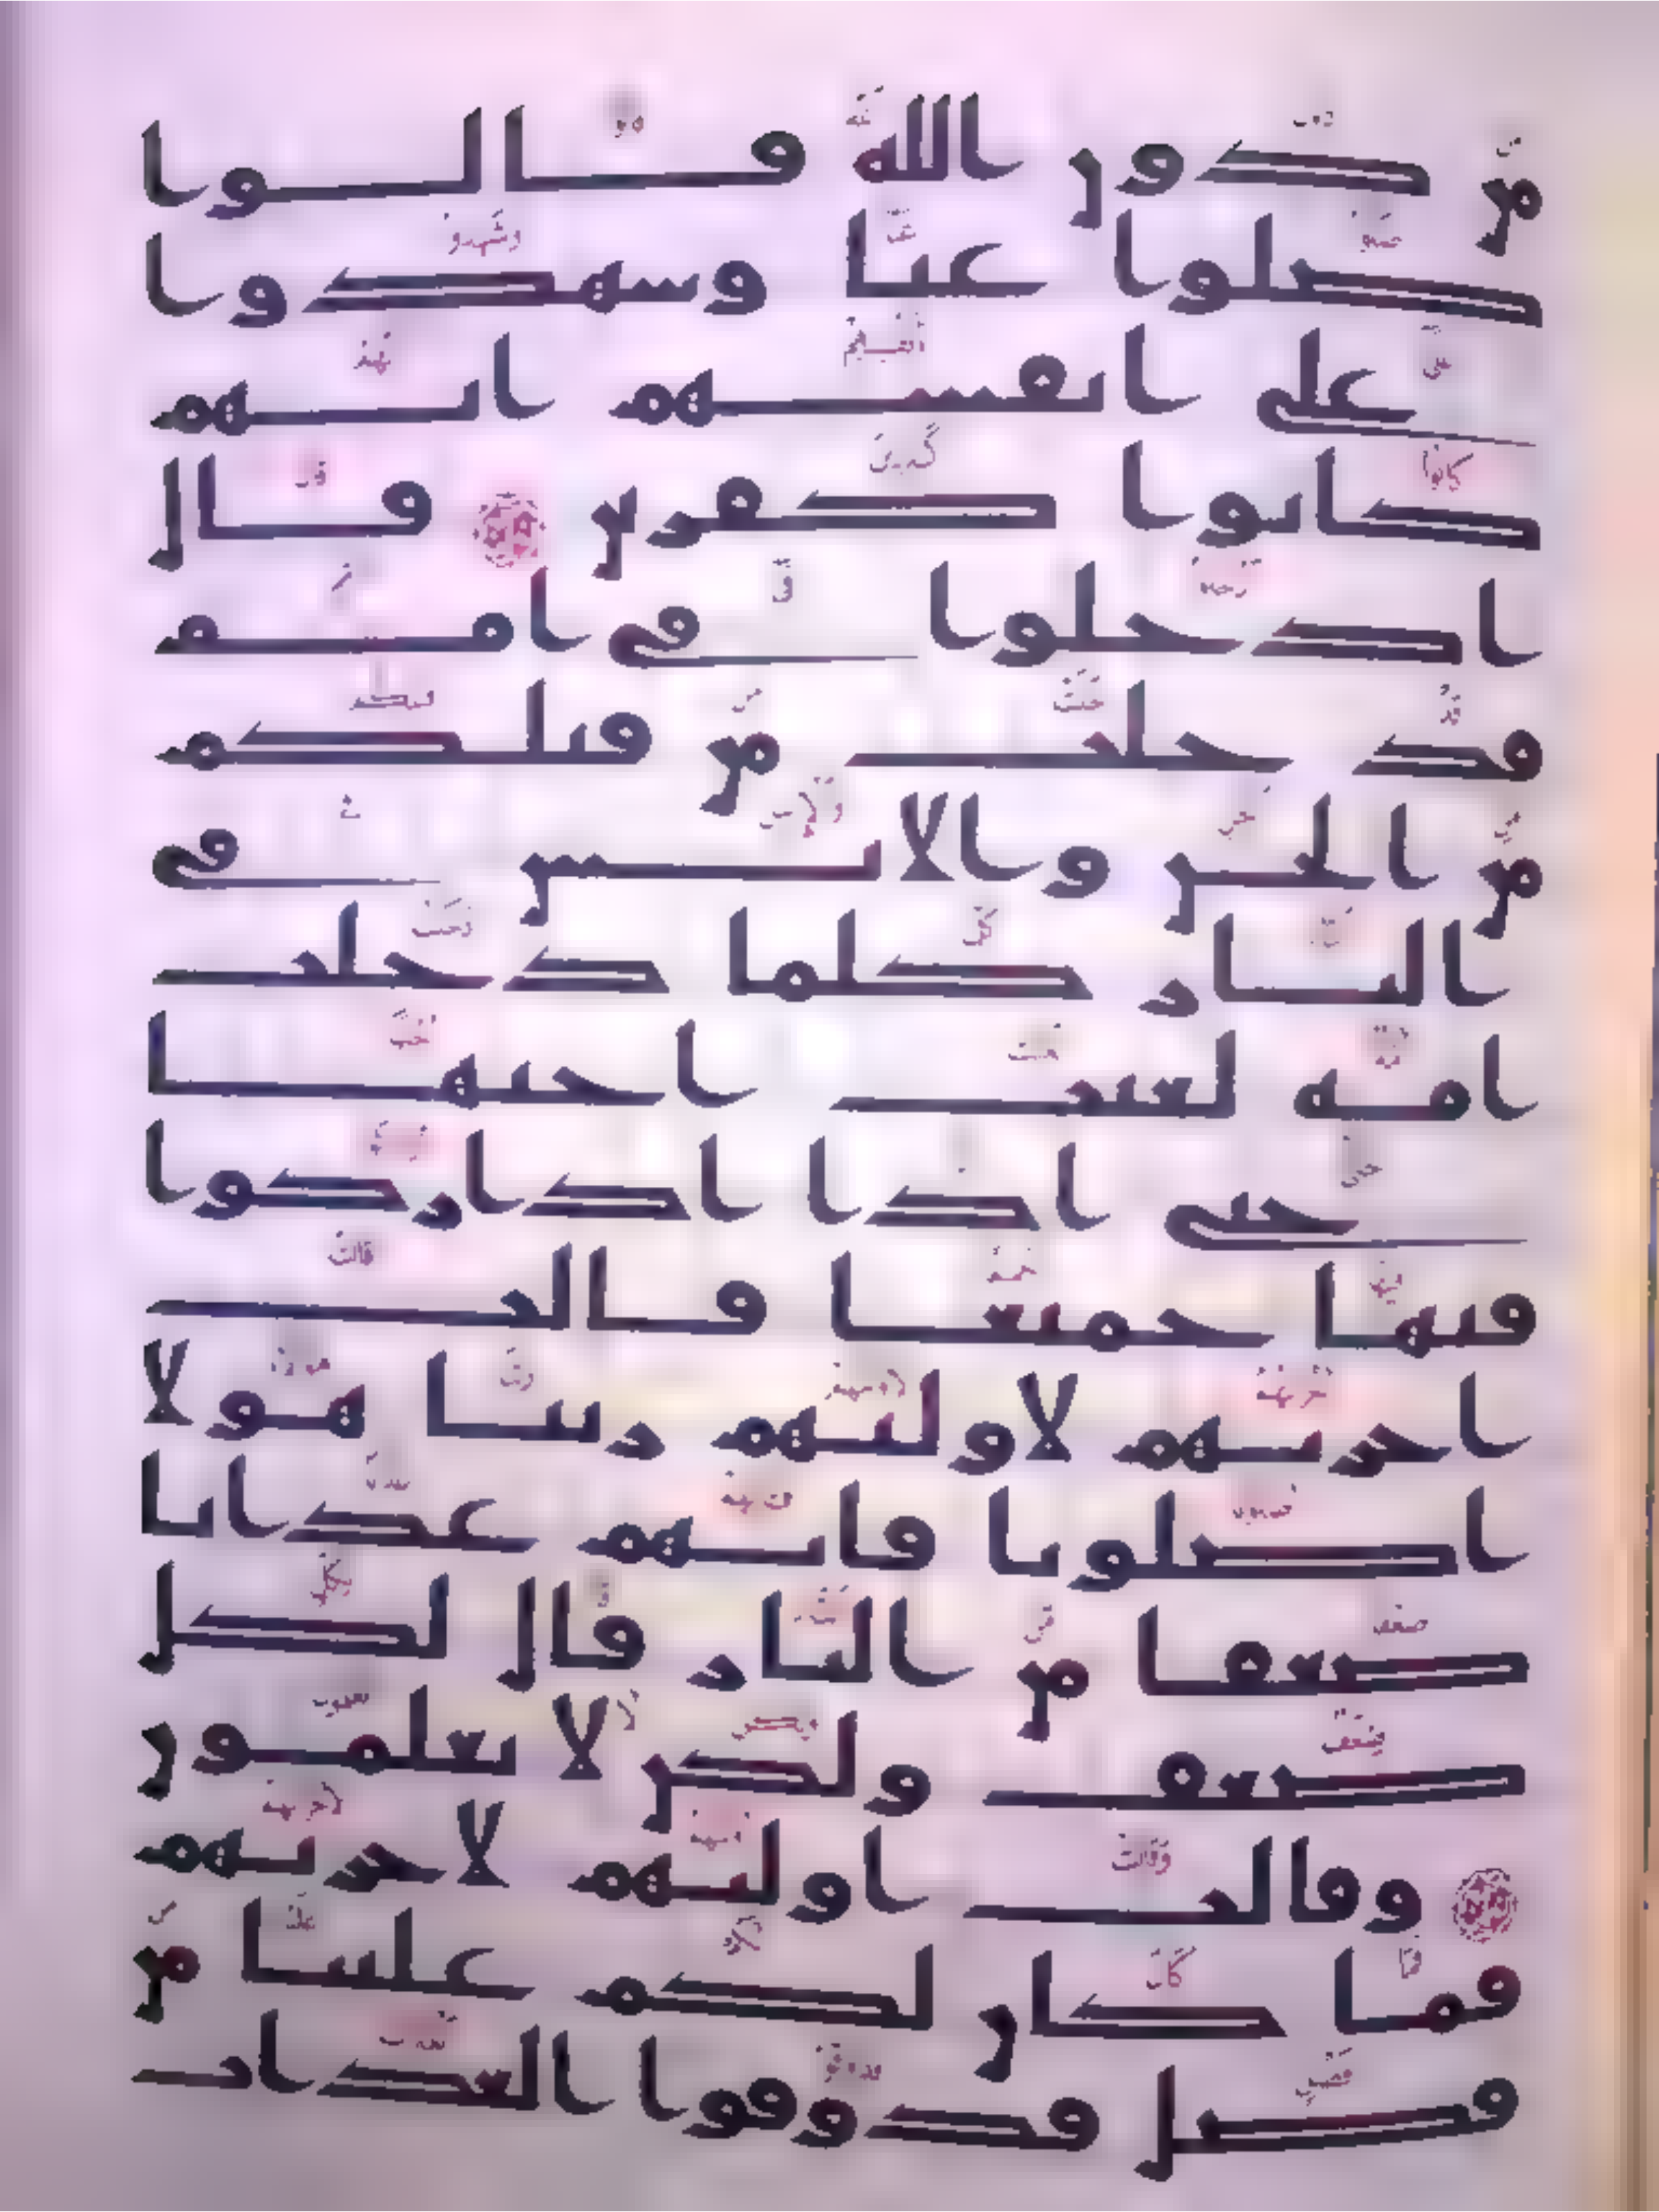 من دون الله قالوا
ضلوا عنا وشهدوا
على انفسهم انهم
كانوا كفرين قال
ادخلوا فى امم
قد خلت من قبلكم
من الجن والانس فى
النار كلما دخلت
امة لعنت اختها
حتى اذا اداركوا
فيها جميعا قالت
اخريهم لاوليهم ربنا هولا
اضلونا فاتهم عذابا
ضعفا من النار قال لكل
ضعف ولكن لا تعلمون
وقالت اوليهم لاخريهم
فما كان لكم علينا من
فضل فذوقوا العذاب